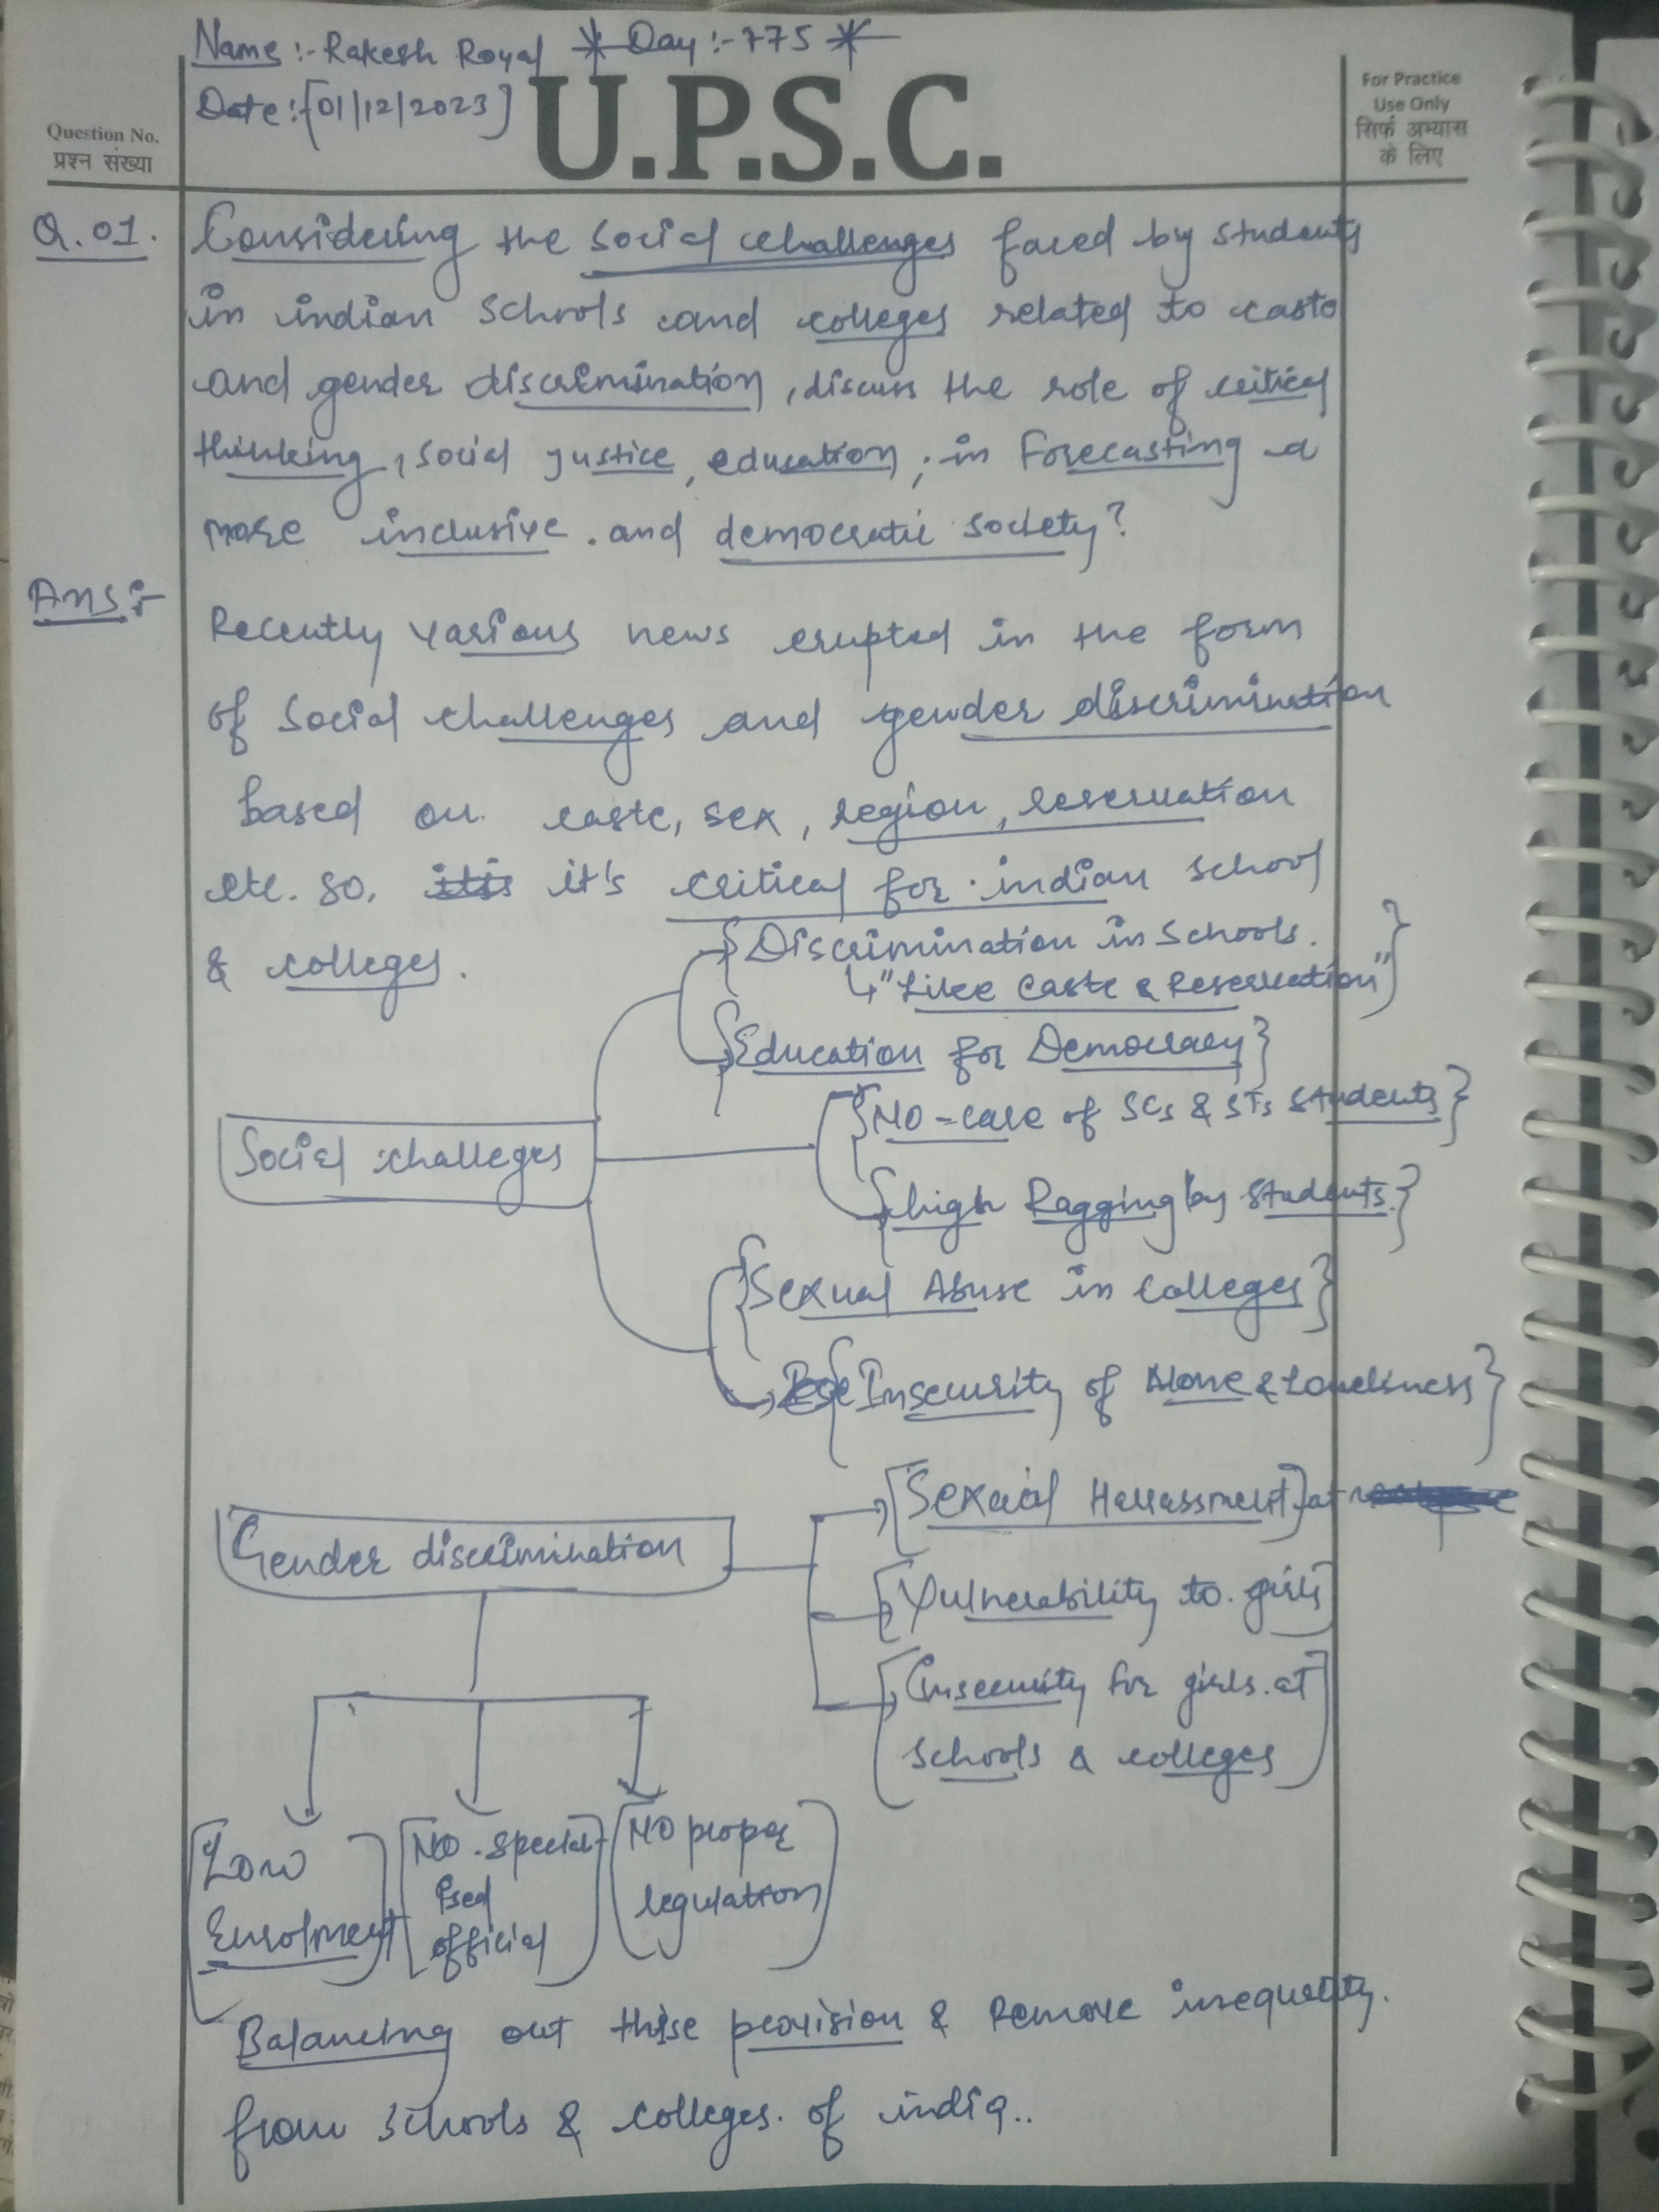 Name :- Rakesh Royal * Day :- 775 *
Date :- [01/12/2023]
U.P.S.C.
Question No.
प्रश्न संख्या
For Practice
Use Only
सिर्फ अभ्यास
के लिए
Q.01. Considering the social challenges faced by students
in indian schools and colleges related to caste
and gender discrimination, discuss the role of critical
thinking, social justice, education, in forecasting a
more inclusive and democratic society?
Ans:- Recently various news erupted in the form
of social challenges and gender discrimination
based on caste, sex, region, reservation
etc. so, it's critical for indian school
& colleges.
Discrimination in schools.
"Like caste & Reservation"
Education for Democracy
Social challeges
No-care of SCs & STs students
high Ragging by students.
Sexual Abuse in colleges
Insecurity of Alone & Loneliness
Gender discrimination
Sexual Harrassment at
Vulnerability to girls
Insecurity for girls at
schools & colleges
Low
Enrolment
No special-
ised
official
No proper
regulation
Balancing out these provision & Remove inequality.
from schools & colleges. of india..